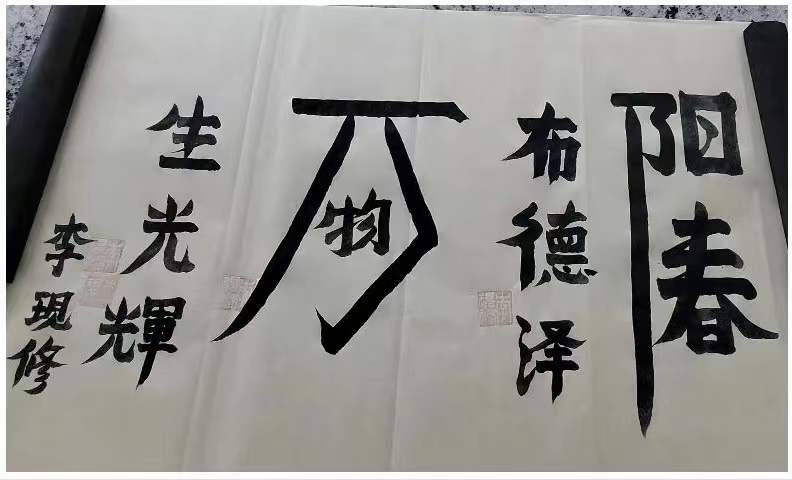 阳春
布德泽
万物
生光輝
李现修